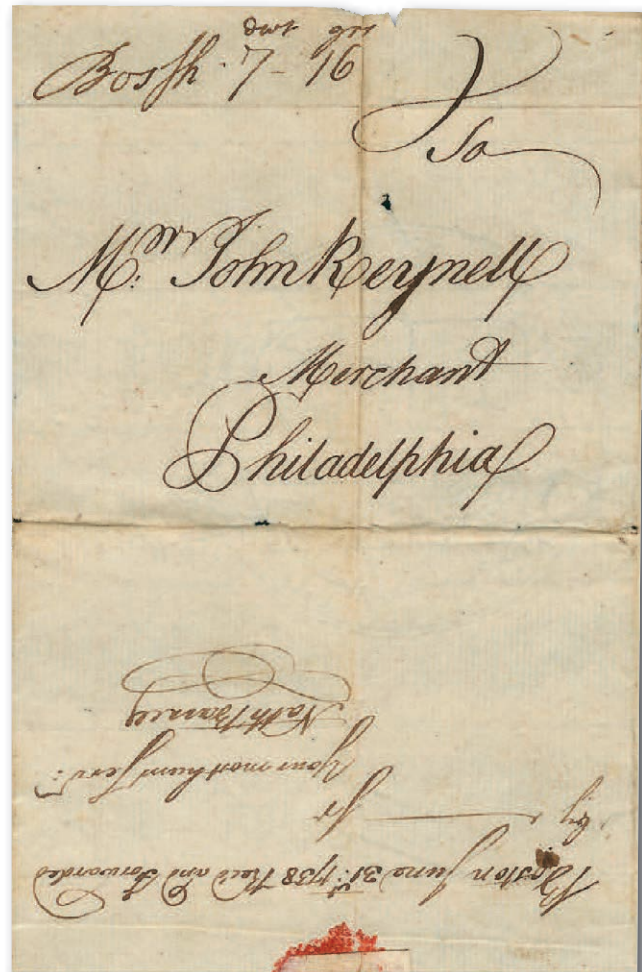 dwt grs
Bossh 7 - 16
To
Mr. John Reynell
Merchant
Philadelphia
Boston June 3d: 1738 Rec'd and Forwarded
by Sr
Your most hum Serv: